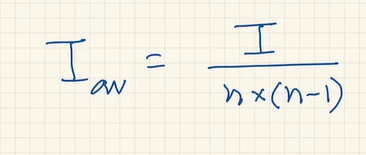 I_av = I / (n×(n-1))